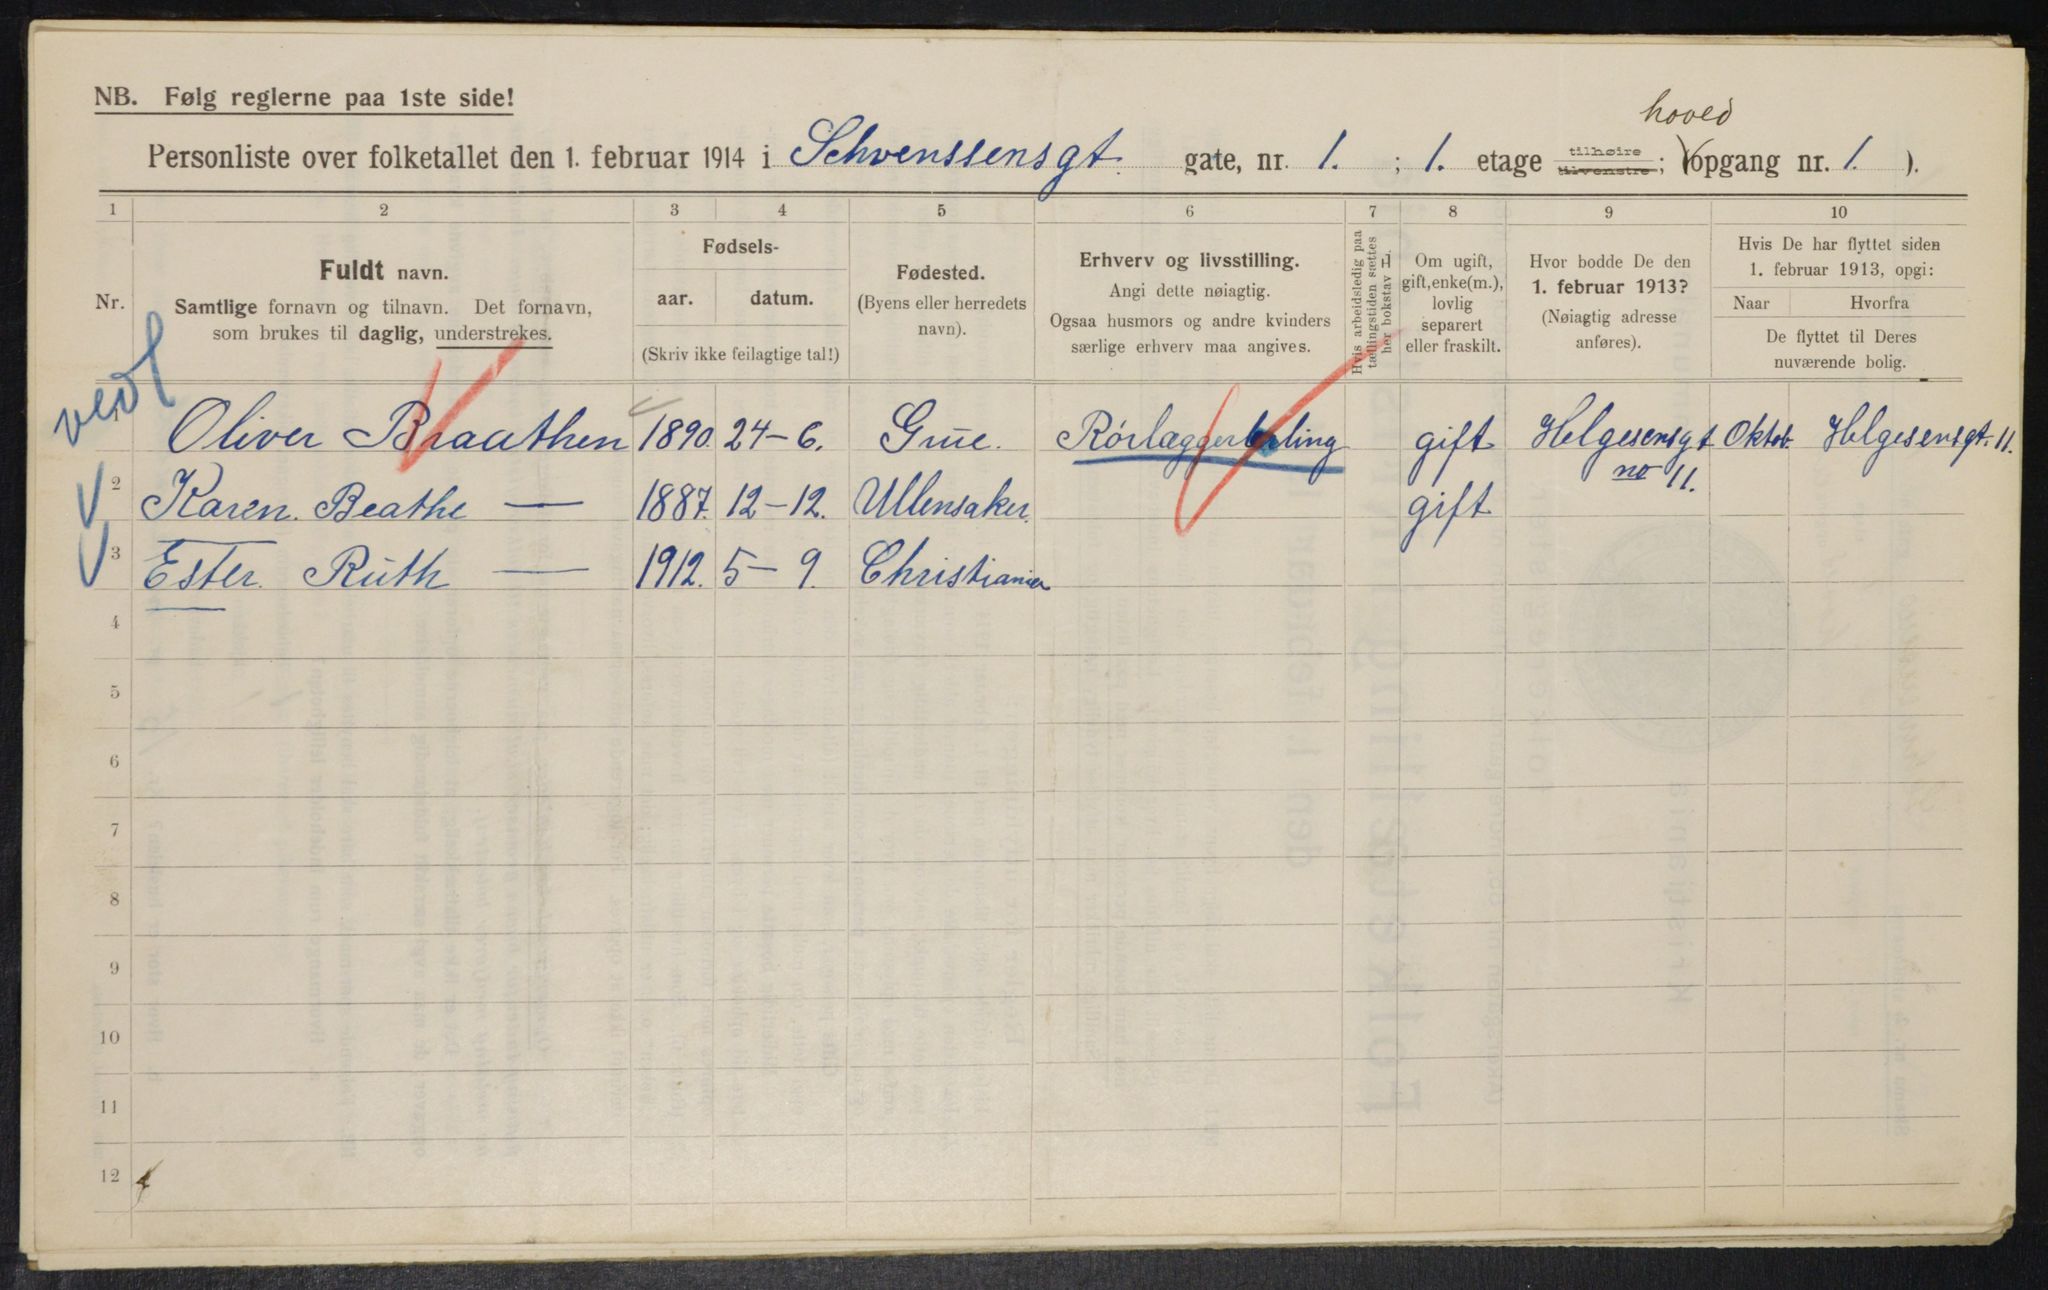 NB. Følg reglerne paa 1ste side!
hoved
Personliste over folketallet den 1. februar 1914 i Schvenssensgt. gate, nr. 1. ; 1. etage tilhøire tilvenstre; (opgang nr. 1. ).
1 2 3 4 5 6 7 8 9 10
Nr.
Fuldt navn.
Samtlige fornavn og tilnavn. Det fornavn,
som brukes til daglig, understrekes.
Fødsels-
aar. datum.
(Skriv ikke feilagtige tal!)
Fødested.
(Byens eller herredets
navn).
Erhverv og livsstilling.
Angi dette nøiagtig.
Ogsaa husmors og andre kvinders
særlige erhverv maa angives.
Hvis arbeidsledig paa
tællingstiden sættes
her bokstav L.
Om ugift,
gift, enke(m.),
lovlig
separert
eller fraskilt.
Hvor bodde De den
1. februar 1913?
(Nøiagtig adresse
anføres).
Hvis De har flyttet siden
1. februar 1913, opgi:
Naar Hvorfra
De flyttet til Deres
nuværende bolig.
Oliver Braathen 1890. 24-6. Grue. Rörlæggerlærling gift Helgesensgt Oktob. Helgesensgt. 11.
no 11.
2 Karen. Beathe — 1887. 12-12. Ullensaker. gift
3 Ester. Ruth — 1912. 5-9. Christiania
4
5
6
7
8
9
10
11
12